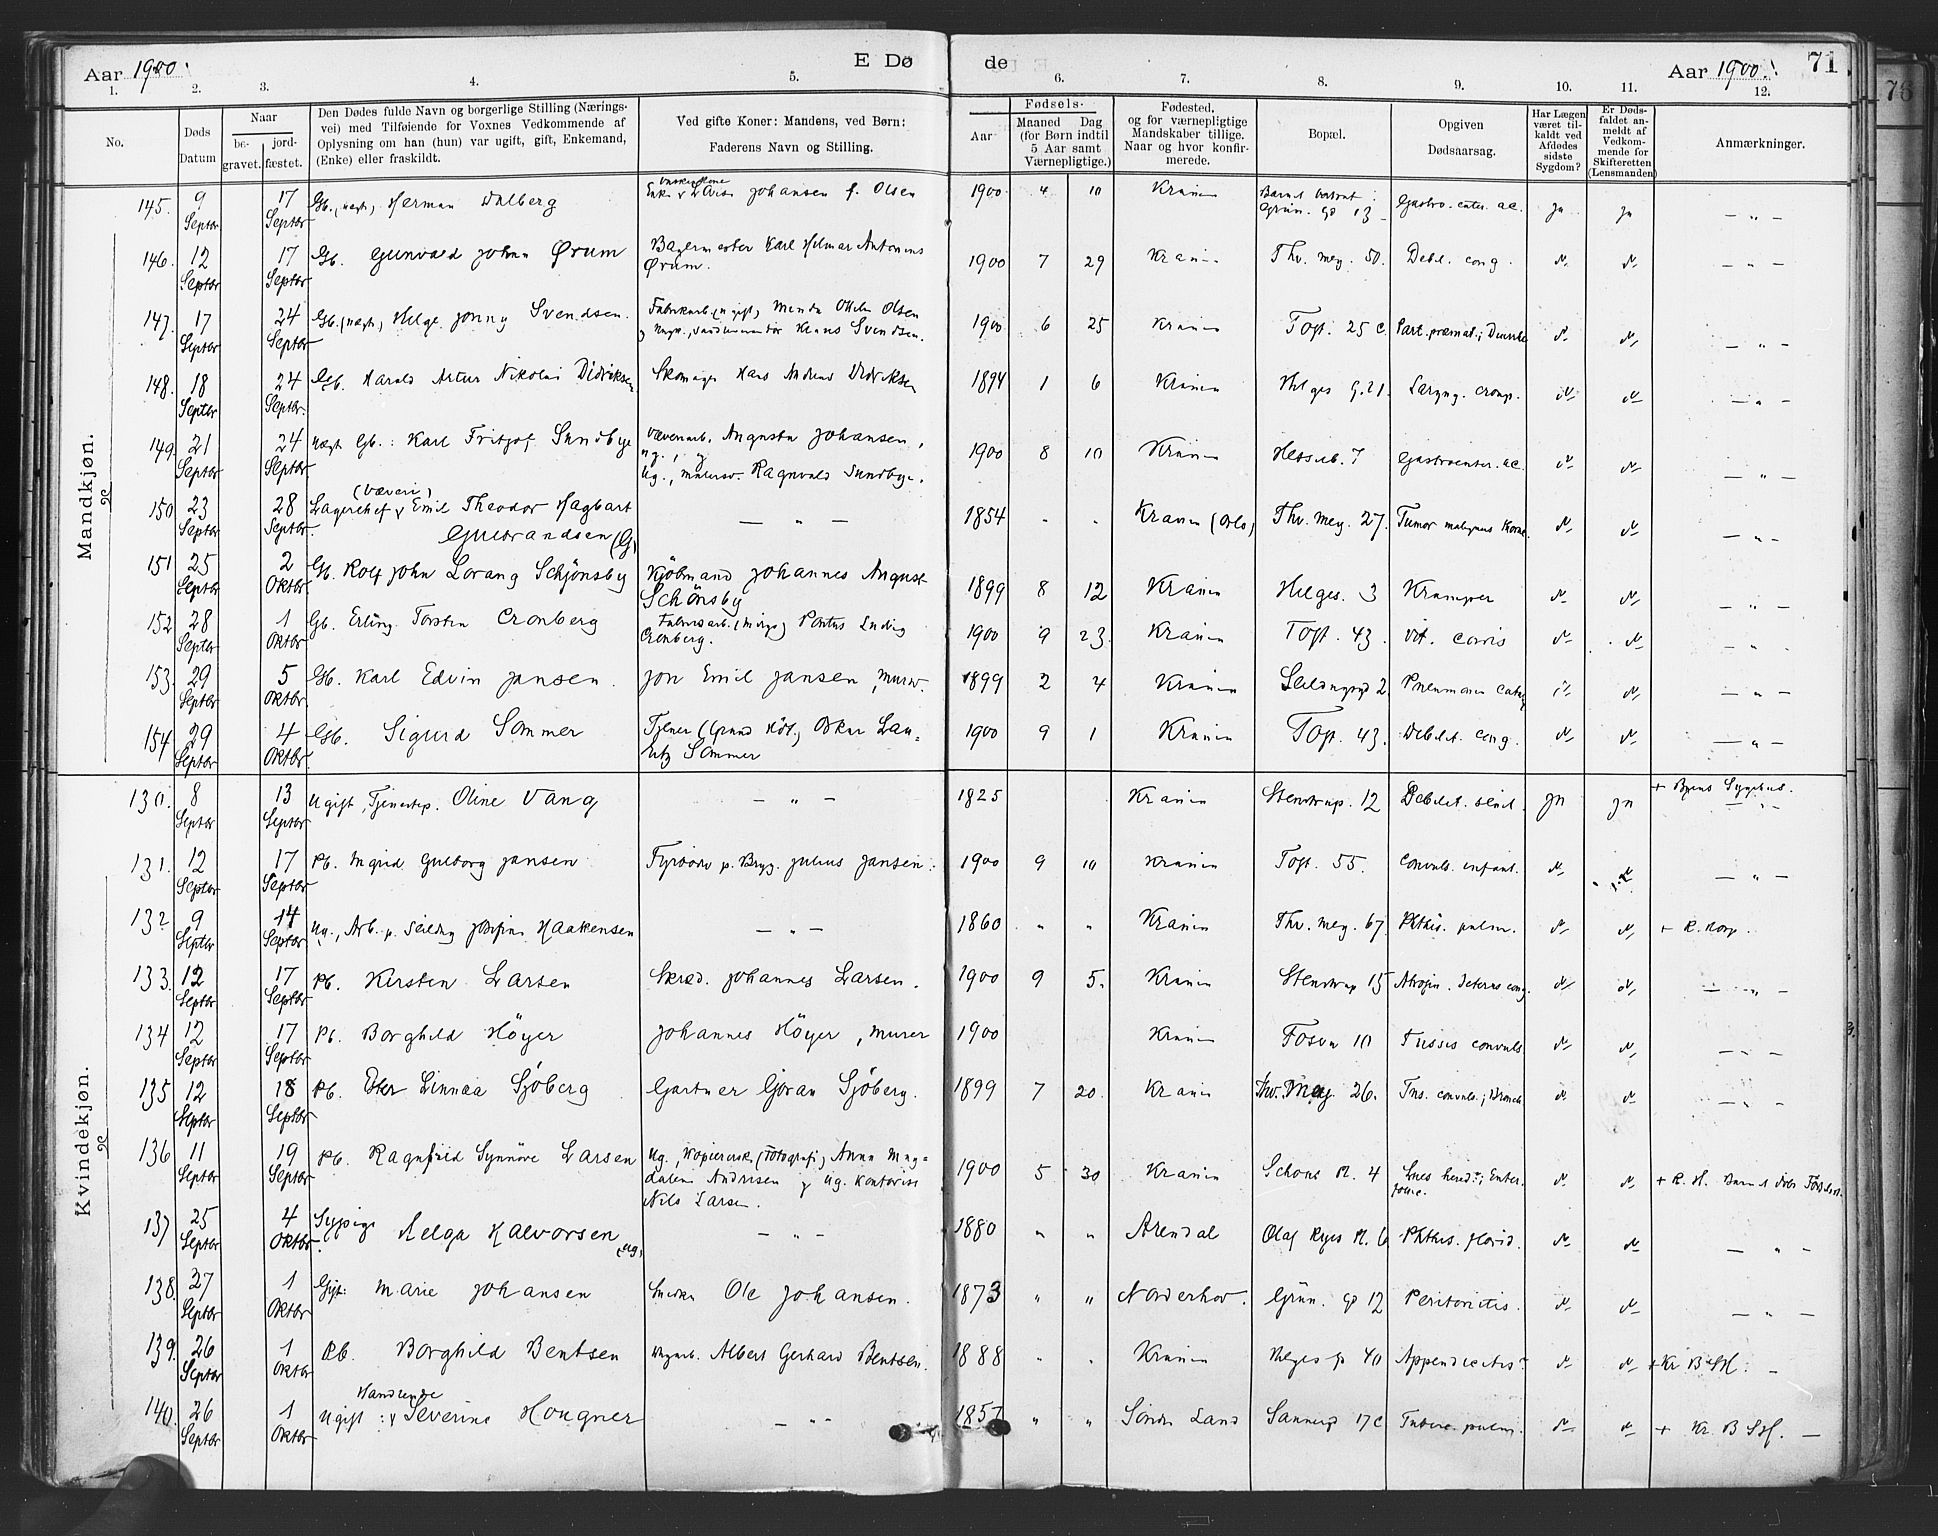 Aar 1900. E Dø de Aar 1900. 71.
1. 2. 3. 4. 5. 6. 7. 8. 9. 10. 11. 12.
No.
Døds Datum
Naar
be-gravet. jord-fæstet.
Den Dødes fulde Navn og borgerlige Stilling (Nærings-
vei) med Tilføiende for Voxnes Vedkommende af
Oplysning om han (hun) var ugift, gift, Enkemand,
(Enke) eller fraskildt.
Ved gifte Koner: Mandens, ved Børn:
Faderens Navn og Stilling.
Fødsels-
Aar
Maaned Dag
(for Børn indtil
5 Aar samt
Værnepligtige.)
Fødested,
og for værnepligtige
Mandskaber tillige.
Naar og hvor konfir-
merede.
Bopæl.
Opgiven
Dødsaarsag.
Har Lægen
været til-
kaldt ved
Afdødes
sidste
Sygdom?
Er Døds-
faldet an-
meldt af
Vedkom-
mende for
Skifteretten
(Lensmanden)
Anmærkninger.
Mandkjøn.
145. 9 Septbr 17 Septbr Gb. (uægt) Herman Walberg Johansen f. Olsen 1900 4 10 Krania Grün. gd 13 Gastro. enter. ac. ja ja — „ —
146. 12 Septbr 17 Septbr Gb. Gunvald Johan Ørum Bagermester Karl Hilmar Antonius Ørum. 1900 7 29 Krania Thv. mey. 50. Debil. cong. N. N. — „ —
147. 17 Septbr 24 Septbr Gb. (uægt) Helge Jonny Svendsen. Fabrikarb. (ugift) Olsen Svendsen. 1900 6 25 Krania Toft. 25 c Part. præmat.; N. N. — „ —
148. 18 Septbr 24 Septbr Gb. Harald Artur Nikolai Didriksen Skomager Hans Andreas Didriksen 1894 1 6 Krania Helges. G. 21. Laryng. croup. N. N. — „ —
149. 21 Septbr 24 Septbr uægt Gb.: Karl Fritjof Sundbye Væveriarb. Augusta Johansen, ug., og ug., malersv. Ragnvald Sundbye. 1900 8 10 Krania 7 Gastroenter. ac. N. N. — „ —
150 23 Septbr 28 Septbr. Lagerchef (Væveri) Emil Theodor Hagbart Gulbrandsen (G) — „ — 1854 „ „ Krania (Oslo) Thv. mey. 27. Tumor malignus N. N. — „ —
151 25 Septbr 2 Oktbr Gb. Rolf John Lorang Schjønsby Kjøbmand Johannes August Schønsby 1899 8 12 Krania Helges. 3 Kramper N. N. — „ —
152 28 Septbr 1 Oktbr Gb. Erling Torsten Cronberg Pontus Ludvig Cronberg. 1900 9 23 Krania Toft. 43. Vit. cordis N. N. — „ —
153. 29 Septbr 5 Oktbr. Gb. Karl Edvin Jansen. Jon Emil Jansen, mursv. 1899 2 4 Krania 2. Pneumonia N. — „ —
154. 29 Septbr 4 Oktbr. Gb. Sigurd Sommer Tjener (Grand Hôt.) Oskar Lauritz Sommer 1900 9 1 Krania Toft. 43. Debilit. cong. N. N. — „ —
Kvindekjøn.
130. 8 Septbr 13 Septbr Ugift, Tjenestep. Oline Vang — „ — 1825 Krania Stenstrup. 12 Debilit. senil. ja ja + Byens Sygehus.
131. 12 Septbr 17 Septbr Pb. Ingrid Gulborg Jansen Fyrbøder p. Bryg. Julius Jansen. 1900 9 10 Krania Toft. 55. Convuls. infant. N. N. — „ —
132 9 Septbr 14 Septbr Ug., Arb. p. Josefine Haakensen — „ — 1860 „ „ Krania Thv. mey. 67. Phthis. pulm. N. N. + R. Hosp.
133. 12 Septbr 17 Septbr Pb. Kirsten Larsen Skræd. Johannes Larsen. 1900 9 5. Krania Stenstrup 15 N. N. — „ —
134 12 Septbr 17 Septbr Pb. Borghild Höyer Johannes Höyer, murer 1900 Krania Fossv. 10 Tussis convuls. N. N. — „ —
135 12 Septbr 18 Septbr Pb. Ester Linnea Sjöberg Gartner Göran Sjöberg. 1899 7 20. Krania Thv. Mey. 26. Tus. convuls.; Bronch N. N. — „ —
136 11 Septbr 19 Septbr Pb. Ragnhild Synnöve Larsen Ug., (Fotografi) Anna Magdalena Andresen og ug. kontorist Nils Larsen. 1900 5 30 Krania Schous Pl. 4 N. N. + R. H.
137 25 Septbr 4 Oktbr Sypige. Helga Halvorsen (ug.) — „ — 1880 „ „ Arendal Olaf Ryes Pl. 6 Phthis. florid. N. N. — „ —
138. 27 Septbr 1 Oktbr Gift: Marie Johansen Snedker Ole Johansen. 1873 „ „ Norderhov. Grün. gd 12 Peritonitis. N. N. — „ —
139. 26 Septbr 1 Oktbr Pb. Borghild Bentsen Albert Gerhard Bentsen. 1888 „ „ Krania Helges. gd 40 Appendicitis. N. N. + Kr B SH. —
140. 26 Septbr 1 Oktbr Ugift: Handlende Severine Hougner — „ — 1857 „ „ Søndre Land Sannergd 17c Tuberc. pulm. N. N. + Kr. B SH. —